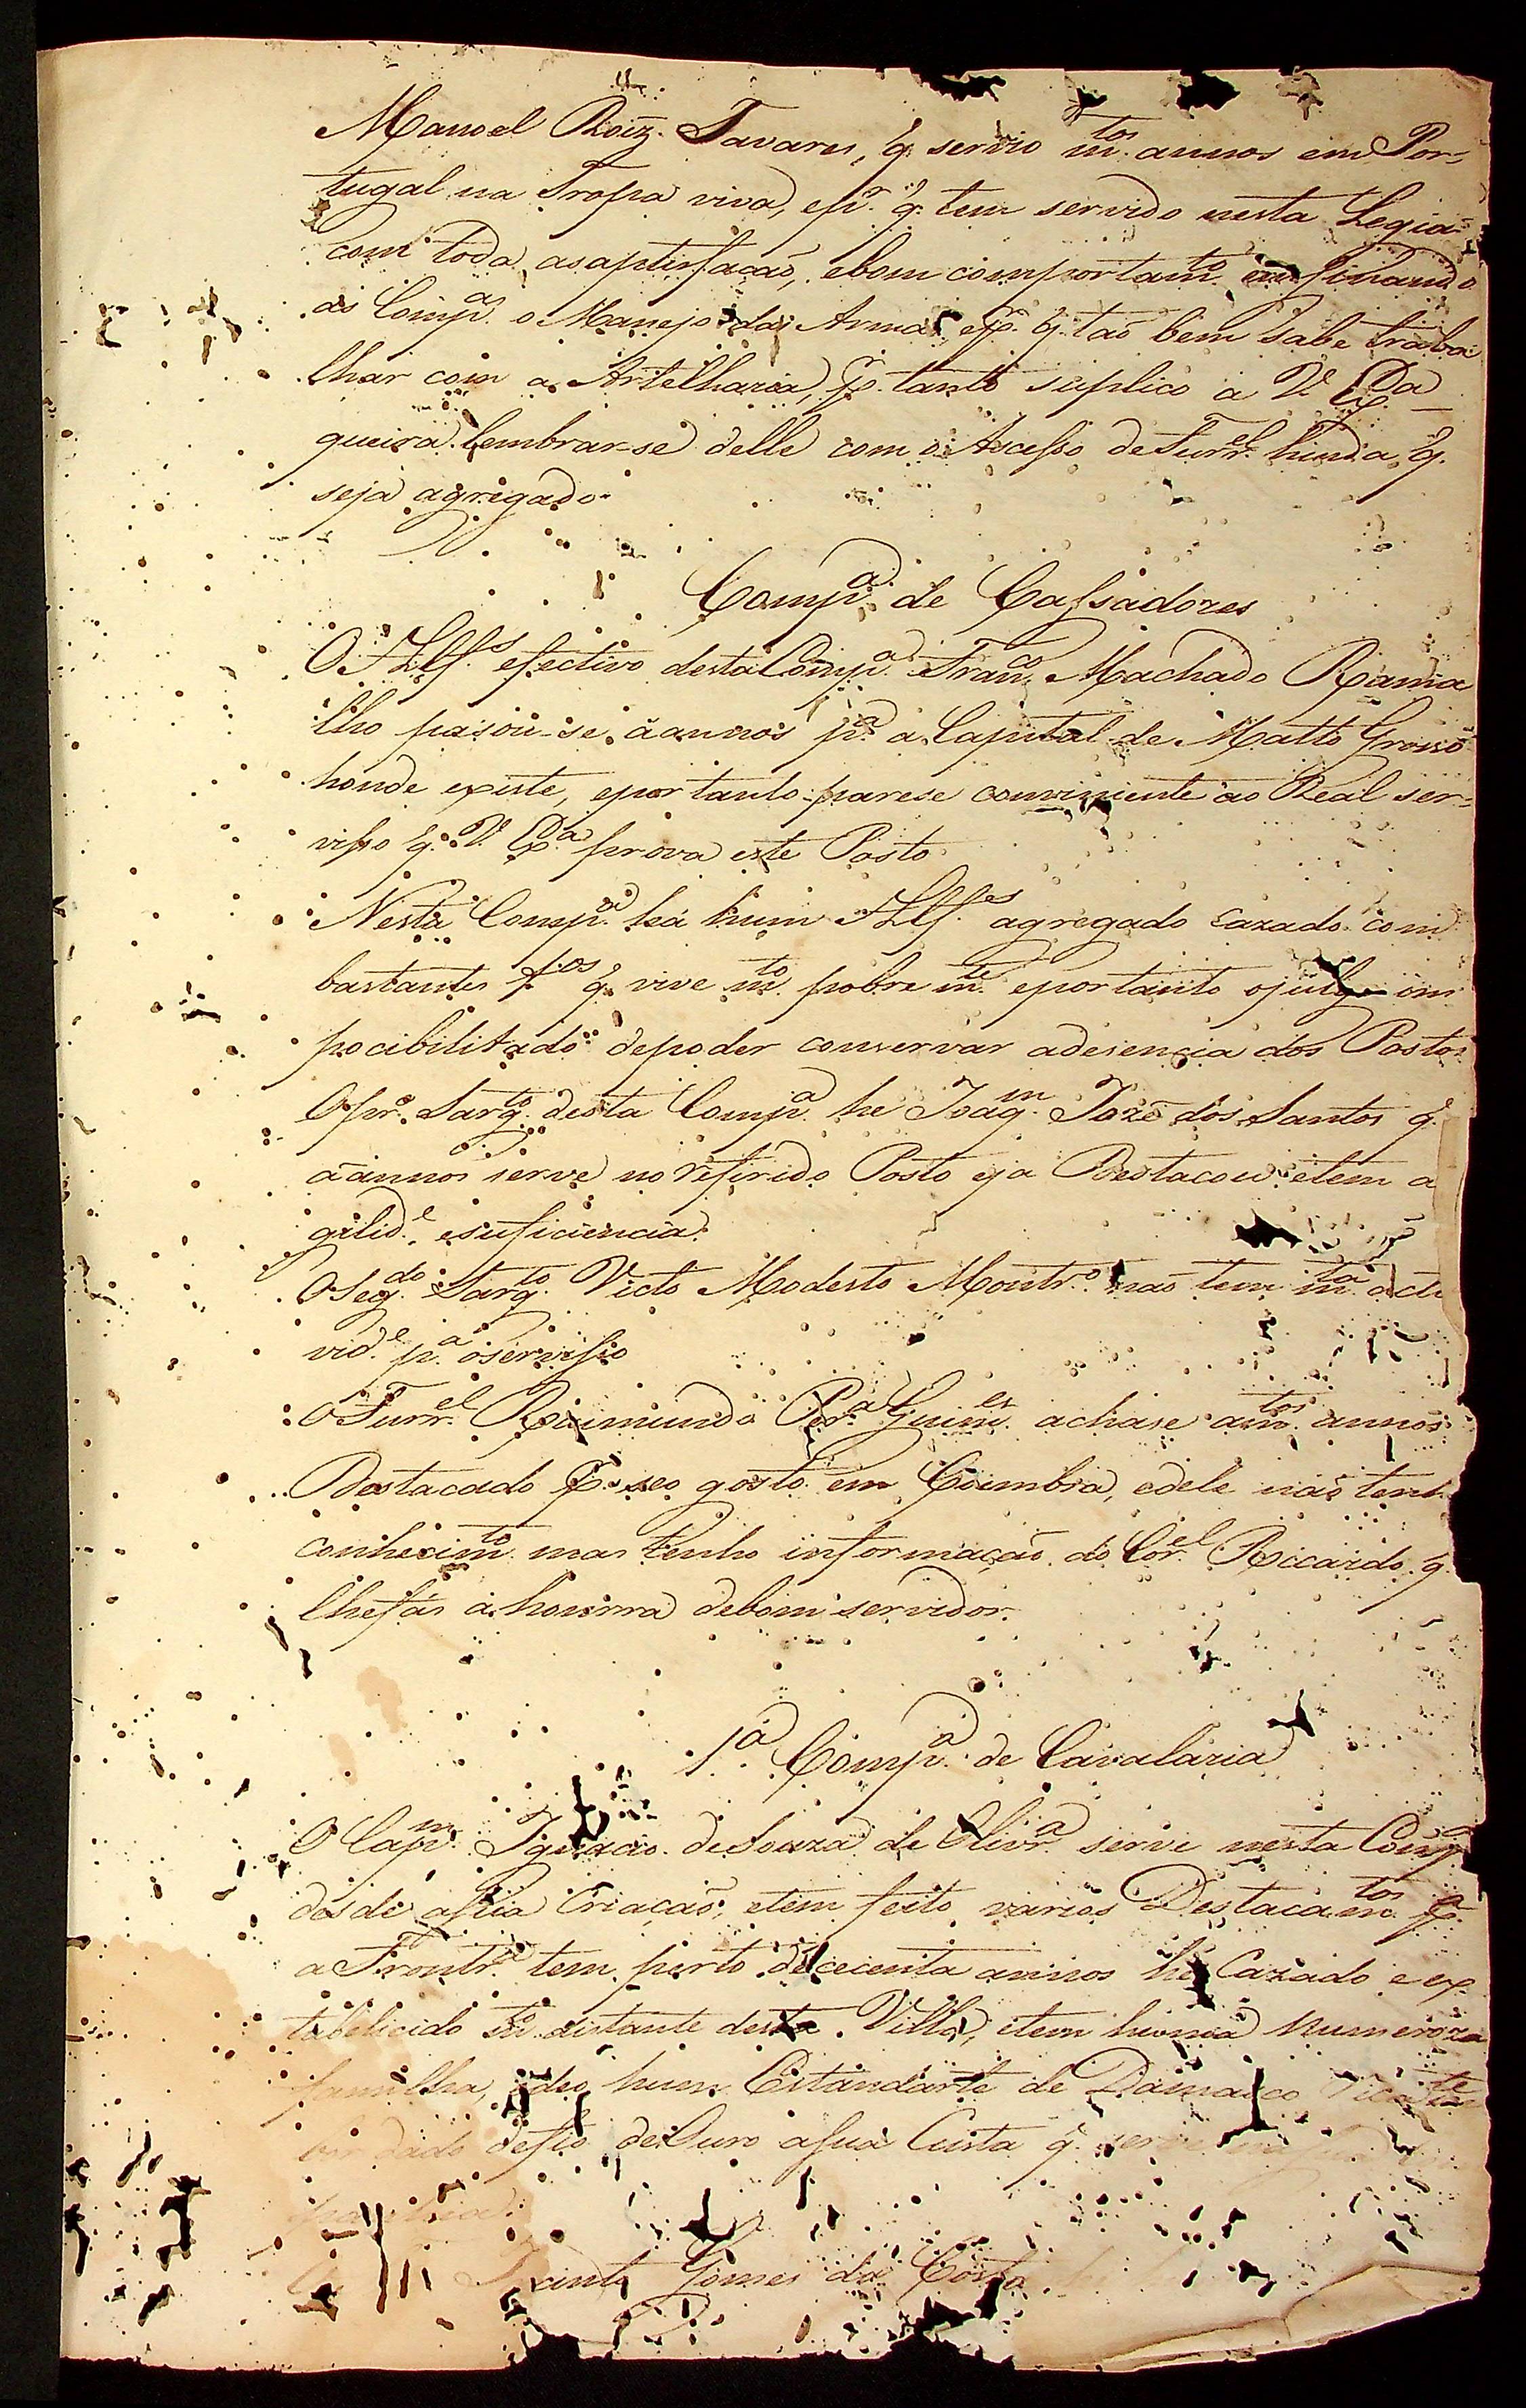 Manoel Roiz. Tavares, q. servio m.tos annos em Por-
tugal na Tropa viva, e pr. q. tem servido nesta Legiaõ
com toda asaptisfacaõ, ebom comportam.to insinando
as Comp.as o Manejo da Arma e p. q. taõ bem sabe traba
lhar com a Artelharia, p. tanto suplico a V. Ex.a
queira lembrar-se delle com o Ascesso de Furr.el hinda q.
seja agregado.
Comp.a de Cassadores
O Alf.s efectivo desta Comp.a Fran.co Machado Rama
lho pasou-se áannos p.a a Capital de Matto Grosso
honde existe, eportanto parese conviniente ao Real ser-
visso q. V. Ex.a prova este Posto
Nesta Comp.a há hum Alf.es agregado cazado com
bastantes f.os q. vive m.to pobre m.te eportanto ojulgo im
pocibilitado depoder conservar adesencia dos Postos
O pr.o Sarg.to desta Comp.a he Joaq.m Jozé dos Santos q.
aannos serve no refirido Posto eja Destacou etem a
gilid.e, esuficiencia.
O Seg.do Sarg.to Victo Modesto Montr.o naõ tem m.ta acti
vid.e p.a oservisso
O Furr.el Raimundo Per.a Guim.es achase am.tos annos
Destacado p. seo gosto em Coimbra, edele naõ tenh
conhecim.to mas tenho informaçaõ do Cor.el Riccardo q.
lhefás a honrra debom servidor.
1.a Comp.a de Cavalaria
O Cap.m Ignacio de Souza de Olivr.a serve nesta Comp.a
desde asua Criaçaõ, etem feito varios Destacam.tos p.
a Frontr.a tem perto dececenta annos he Cazado e ex
tabelicido m.to distante desta Villa, etem huma numeroza
familha, hum Estandarte de Damasco
bordado defio de Ouro asua Custa q.
Gomes da Costa